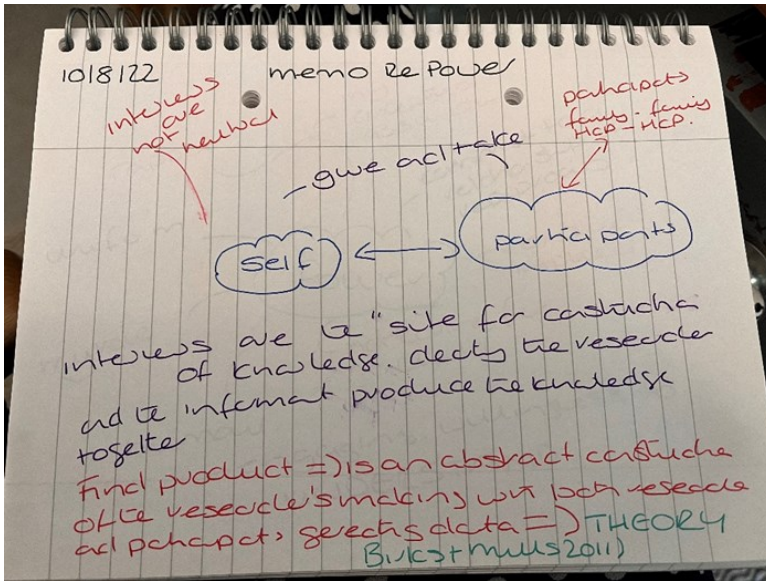 10/8/22 memo Re Power
interviews
are
not neutral
participants
family - family
HCP - HCP.
give and take
self
participants
interviews are the "site for construction
of knowledge. clearly the researcher
and the informant produce the knowledge
together
Final product => is an abstract construction
of the researcher's making with both researcher
and participants data => THEORY
Birks + Mills 2011)